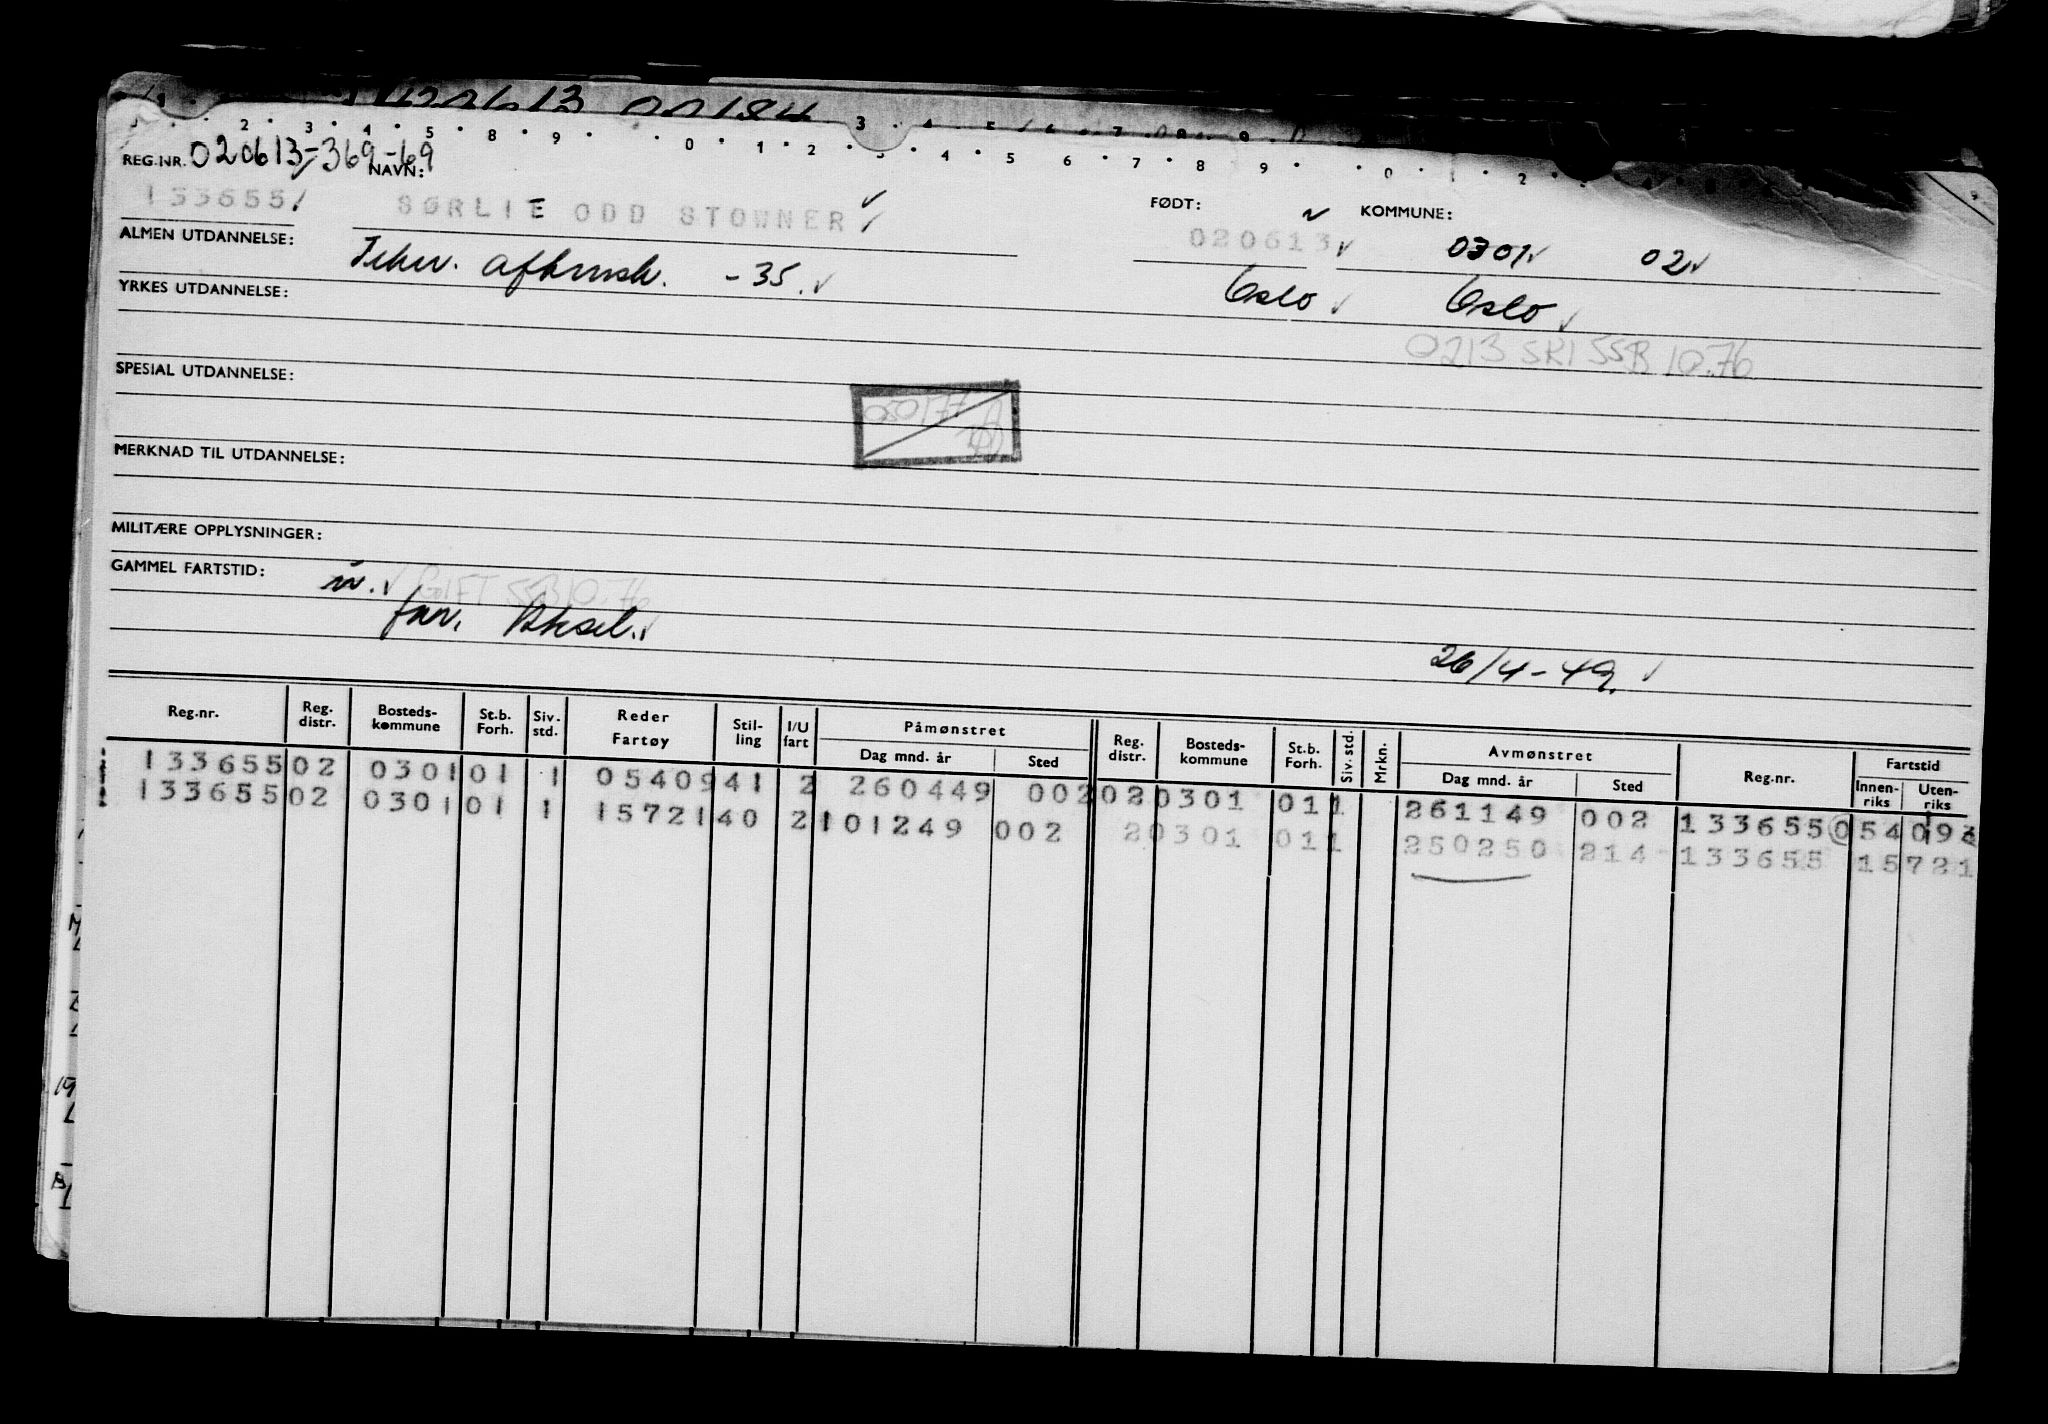 020613 00184
REG.NR. 020613-369-69 NAVN:
133655 SØRLIE ODD STOWNER FØDT: 020613 KOMMUNE: 0301 02
ALMEN UTDANNELSE: -35. Oslo Oslo
YRKES UTDANNELSE:
0213 SKI SSB 10.76
SPESIAL UTDANNELSE:
MERKNAD TIL UTDANNELSE:
MILITÆRE OPPLYSNINGER:
GAMMEL FARTSTID: GIFT SSB 10.76
26/4-49.
Reg.nr. Reg. distr. Bosteds- kommune St.b. Forh. Siv. std. Reder Fartøy Stil- ling I/U fart Påmønstret Dag mnd. år Sted Reg. distr. Bosteds- kommune St.b. Forh. Siv. std. Mrkn. Avmønstret Dag mnd. år Sted Reg.nr. Fartstid Innen- riks Uten- riks
133655 02 0301 01 1 05409 41 2 260449 002 02 0301 01 1 261149 002 133655 05409
133655 02 0301 01 1 15721 40 2 101249 002 2 0301 01 1 250250 214 133655 15721